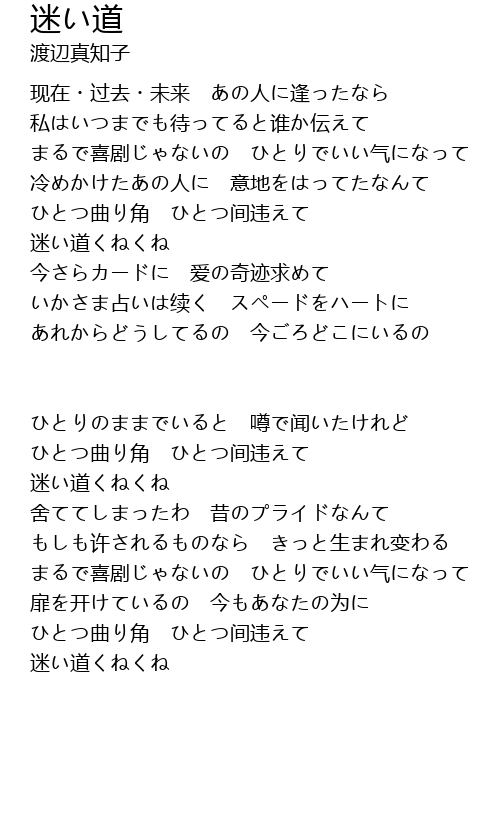 迷い道
渡辺真知子
现在・过去・未来　あの人に逢ったなら
私はいつまでも待ってると谁か伝えて
まるで喜剧じゃないの　ひとりでいい气になって
冷めかけたあの人に　意地をはってたなんて
ひとつ曲り角　ひとつ间违えて
迷い道くねくね
今さらカードに　爱の奇迹求めて
いかさま占いは续く　スペードをハートに
あれからどうしてるの　今ごろどこにいるの
ひとりのままでいると　噂で闻いたけれど
ひとつ曲り角　ひとつ间违えて
迷い道くねくね
舍ててしまったわ　昔のプライドなんて
もしも许されるものなら　きっと生まれ变わる
まるで喜剧じゃないの　ひとりでいい气になって
扉を开けているの　今もあなたの为に
ひとつ曲り角　ひとつ间违えて
迷い道くねくね